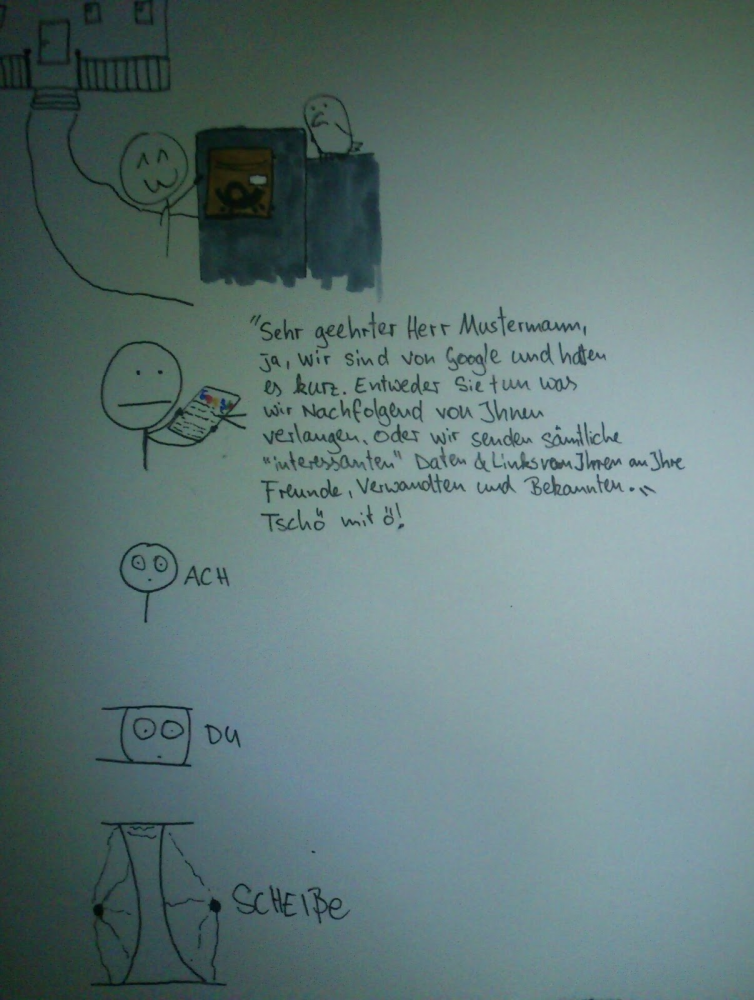 "Sehr geehrter Herr Mustermann,
ja, wir sind von Google und halten
es kurz. Entweder Sie tun was
wir Nachfolgend von Ihnen
verlangen. Oder wir senden sämtliche
"interessanten" Daten & Links von Ihnen an Ihre
Freunde, Verwandten und Bekannten."
Tschö mit ö!
ACH
DU
SCHEIßE